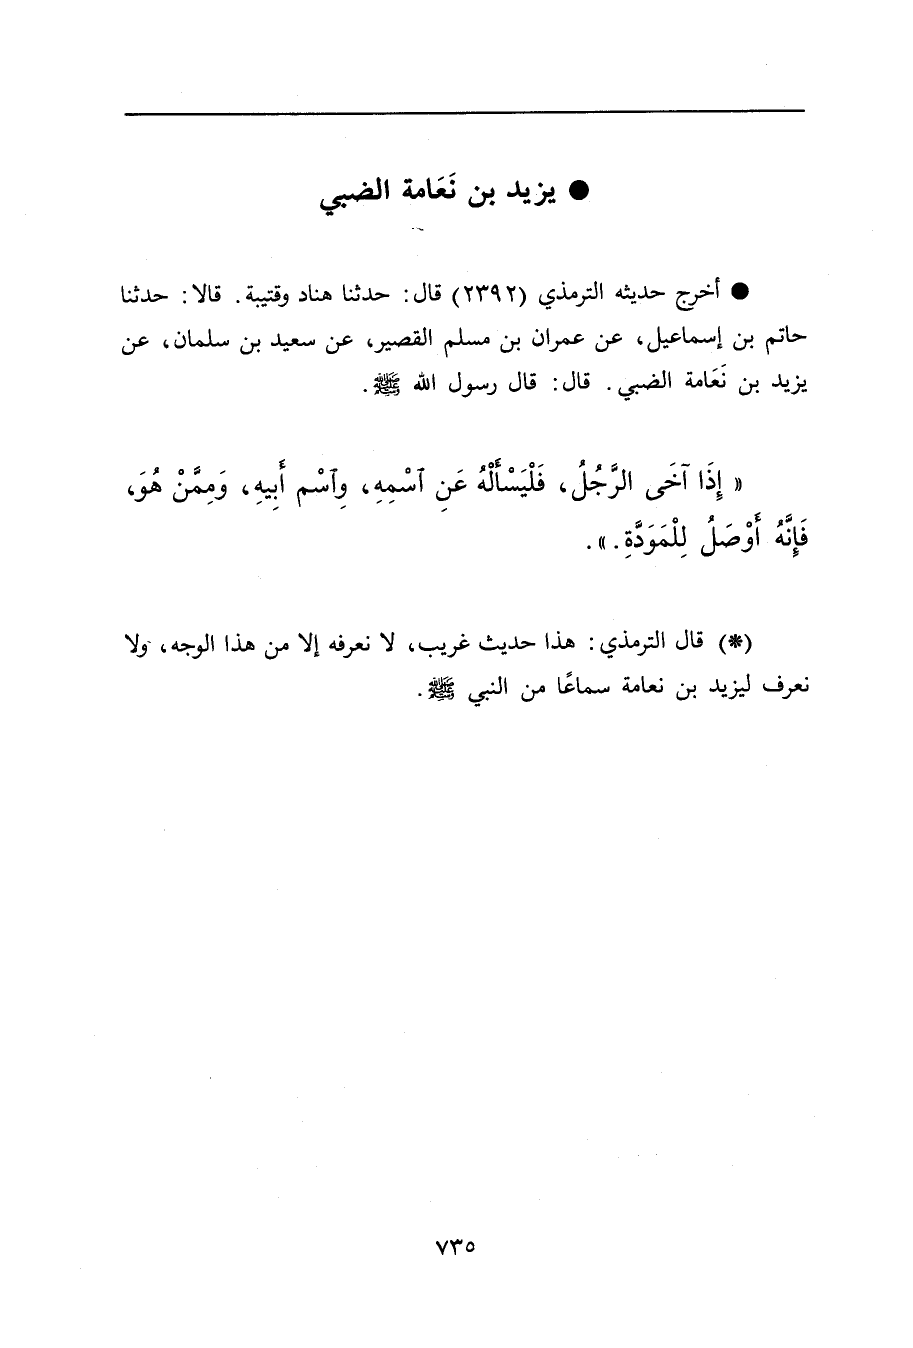 ● يزيد بن نَعَامة الضبي
● أخرج حديثه الترمذي (٢٣٩٢) قال: حدثنا هناد وقتيبة. قالا: حدثنا
حاتم بن إسماعيل، عن عمران بن مسلم القصير، عن سعيد بن سلمان، عن
يزيد بن نَعَامة الضبي. قال: قال رسول الله ﷺ.
« إِذَا آخَى الرَّجُلُ، فَلْيَسْأَلْهُ عَنِ ٱسْمِهِ، وِٱسْمِ أَبِيهِ، وَمِمَّنْ هُوَ،
فَإِنَّهُ أَوْصَلُ لِلْمَوَدَّةِ. ».
(*) قال الترمذي: هذا حديث غريب، لا نعرفه إلا من هذا الوجه، ولا
نعرف ليزيد بن نعامة سماعًا من النبي ﷺ.
٧٣٥